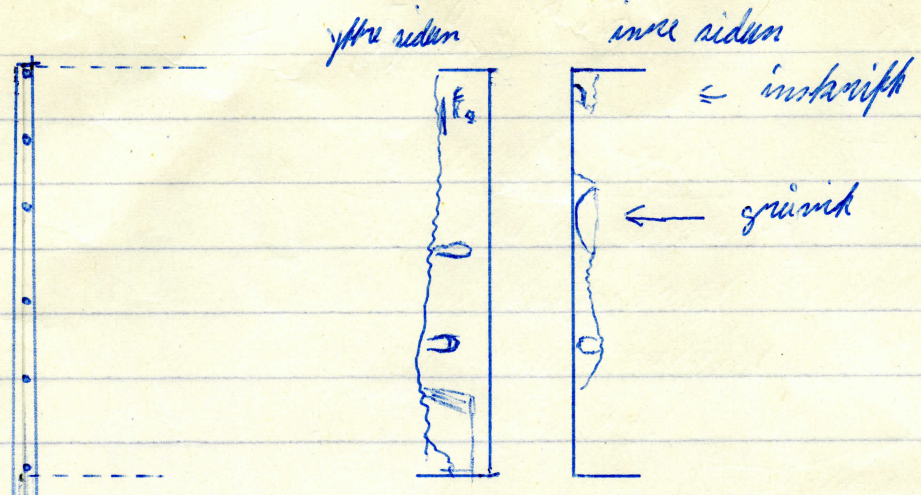 yttre sidan
inre sidan
inskrift